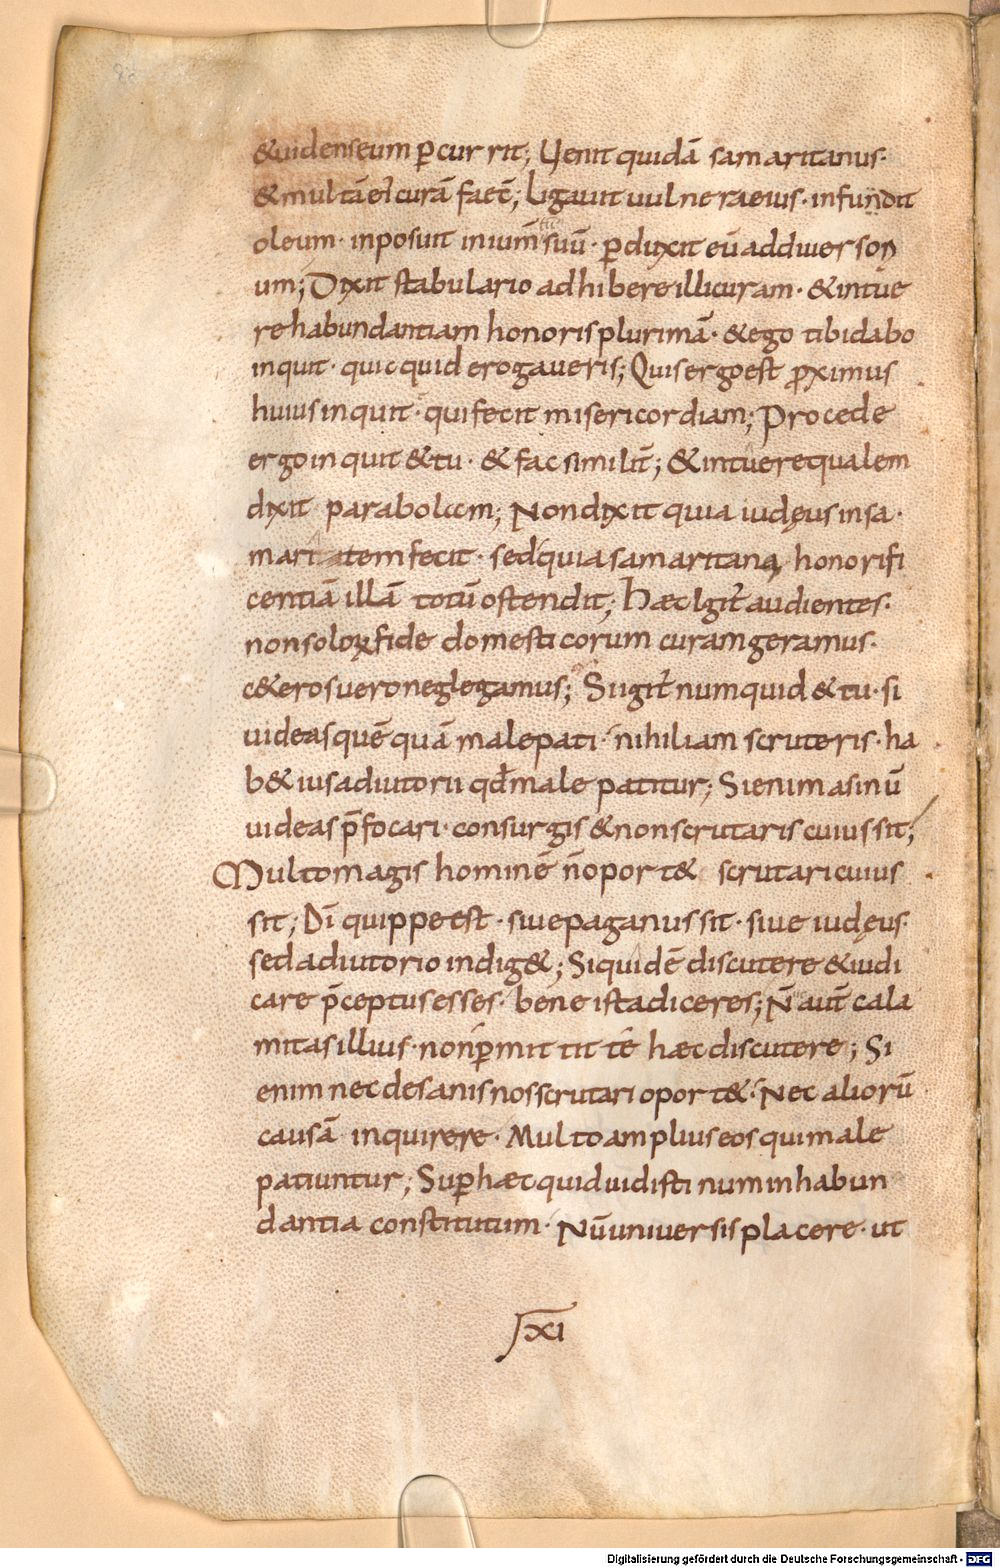 &uidenseum ꝑcurrit; Uenit quidā samaritanus·
& multā ei curā faec̄; ligauit uulnera eius· infundit
oleum· inposuit in ium̄ suū· ꝑduxit eū addiuerson
um; Dixit stabulario adhibere illi curam· & intue
re habundantiam honoris plurimā· & ego tibi dabo
inquit· quicquid erogaueris; Quis ergo est ꝓximus
huius inquit· qui fecit misericordiam; Procede
ergo inquit & tu· & fac similit̄; & intuere qualem
dixit parabolam; Non dixit quia iudęus in sa·
maritatem fecit· sed quia samaritanꝗ honorifi
centiā illā totū ostendit; Haec Igit̄ audientes·
non soloꝝ fide domesticorum curam geramus·
c&eros uero neglegamus; Sic igit̄ numquid & tu· si
uideas quē quā male pati· nihil iam scruteris· ha
b& ius adiutorii qđ male patitur; Si enim asinū
uideas p̄focari· consurgis & non scrutaris cuius sit;
Multo magis hominē n̄ oport& scrutari cuius
sit; Dī quippe est· siue paganus sit· siue iudęus·
sed adiutorio indig&; Siquidē discutere & iudi
care p̄ceptus esses· bene ista diceres; N̄ aut̄ cala
mitas illius· non ꝑmittit te haec discutere; Si
enim nec de sanis nos scrutari oport&· Nec aliorū
causā inquirere· Multo amplius eos qui male
patiuntur; Suꝑ haec quid uidisti num in habun
dantia constitutum· Nū uniuersis placere· ut
xi
Digitalisierung gefördert durch die Deutsche Forschungsgemeinschaft - DFG